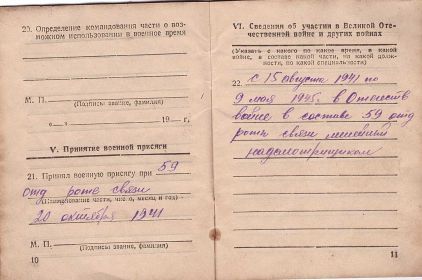 20. Определение командования части о воз-
можном использовании в военное время
М. П.
(Подписы звание, фамилия)
19— г.
V. Принятие военной присяги
21. Принял военную присягу при 59
отд роте связи
(Наименование части, число, месяц и год)
20 октября 1941
М. П.
(Подпись звание, фамилия)
10
VI. Сведения об участии в Великой Оте-
чественной войне и других войнах
(Указать с какого по какое время, в какой
войне, в составе какой части, на какой долж-
ности, по какой специальности)
22. с 15 августа 1941 по
9 мая 1945. в Отечеств
войне в составе 59 отд
роты связи линейным
надсмотрщиком
11